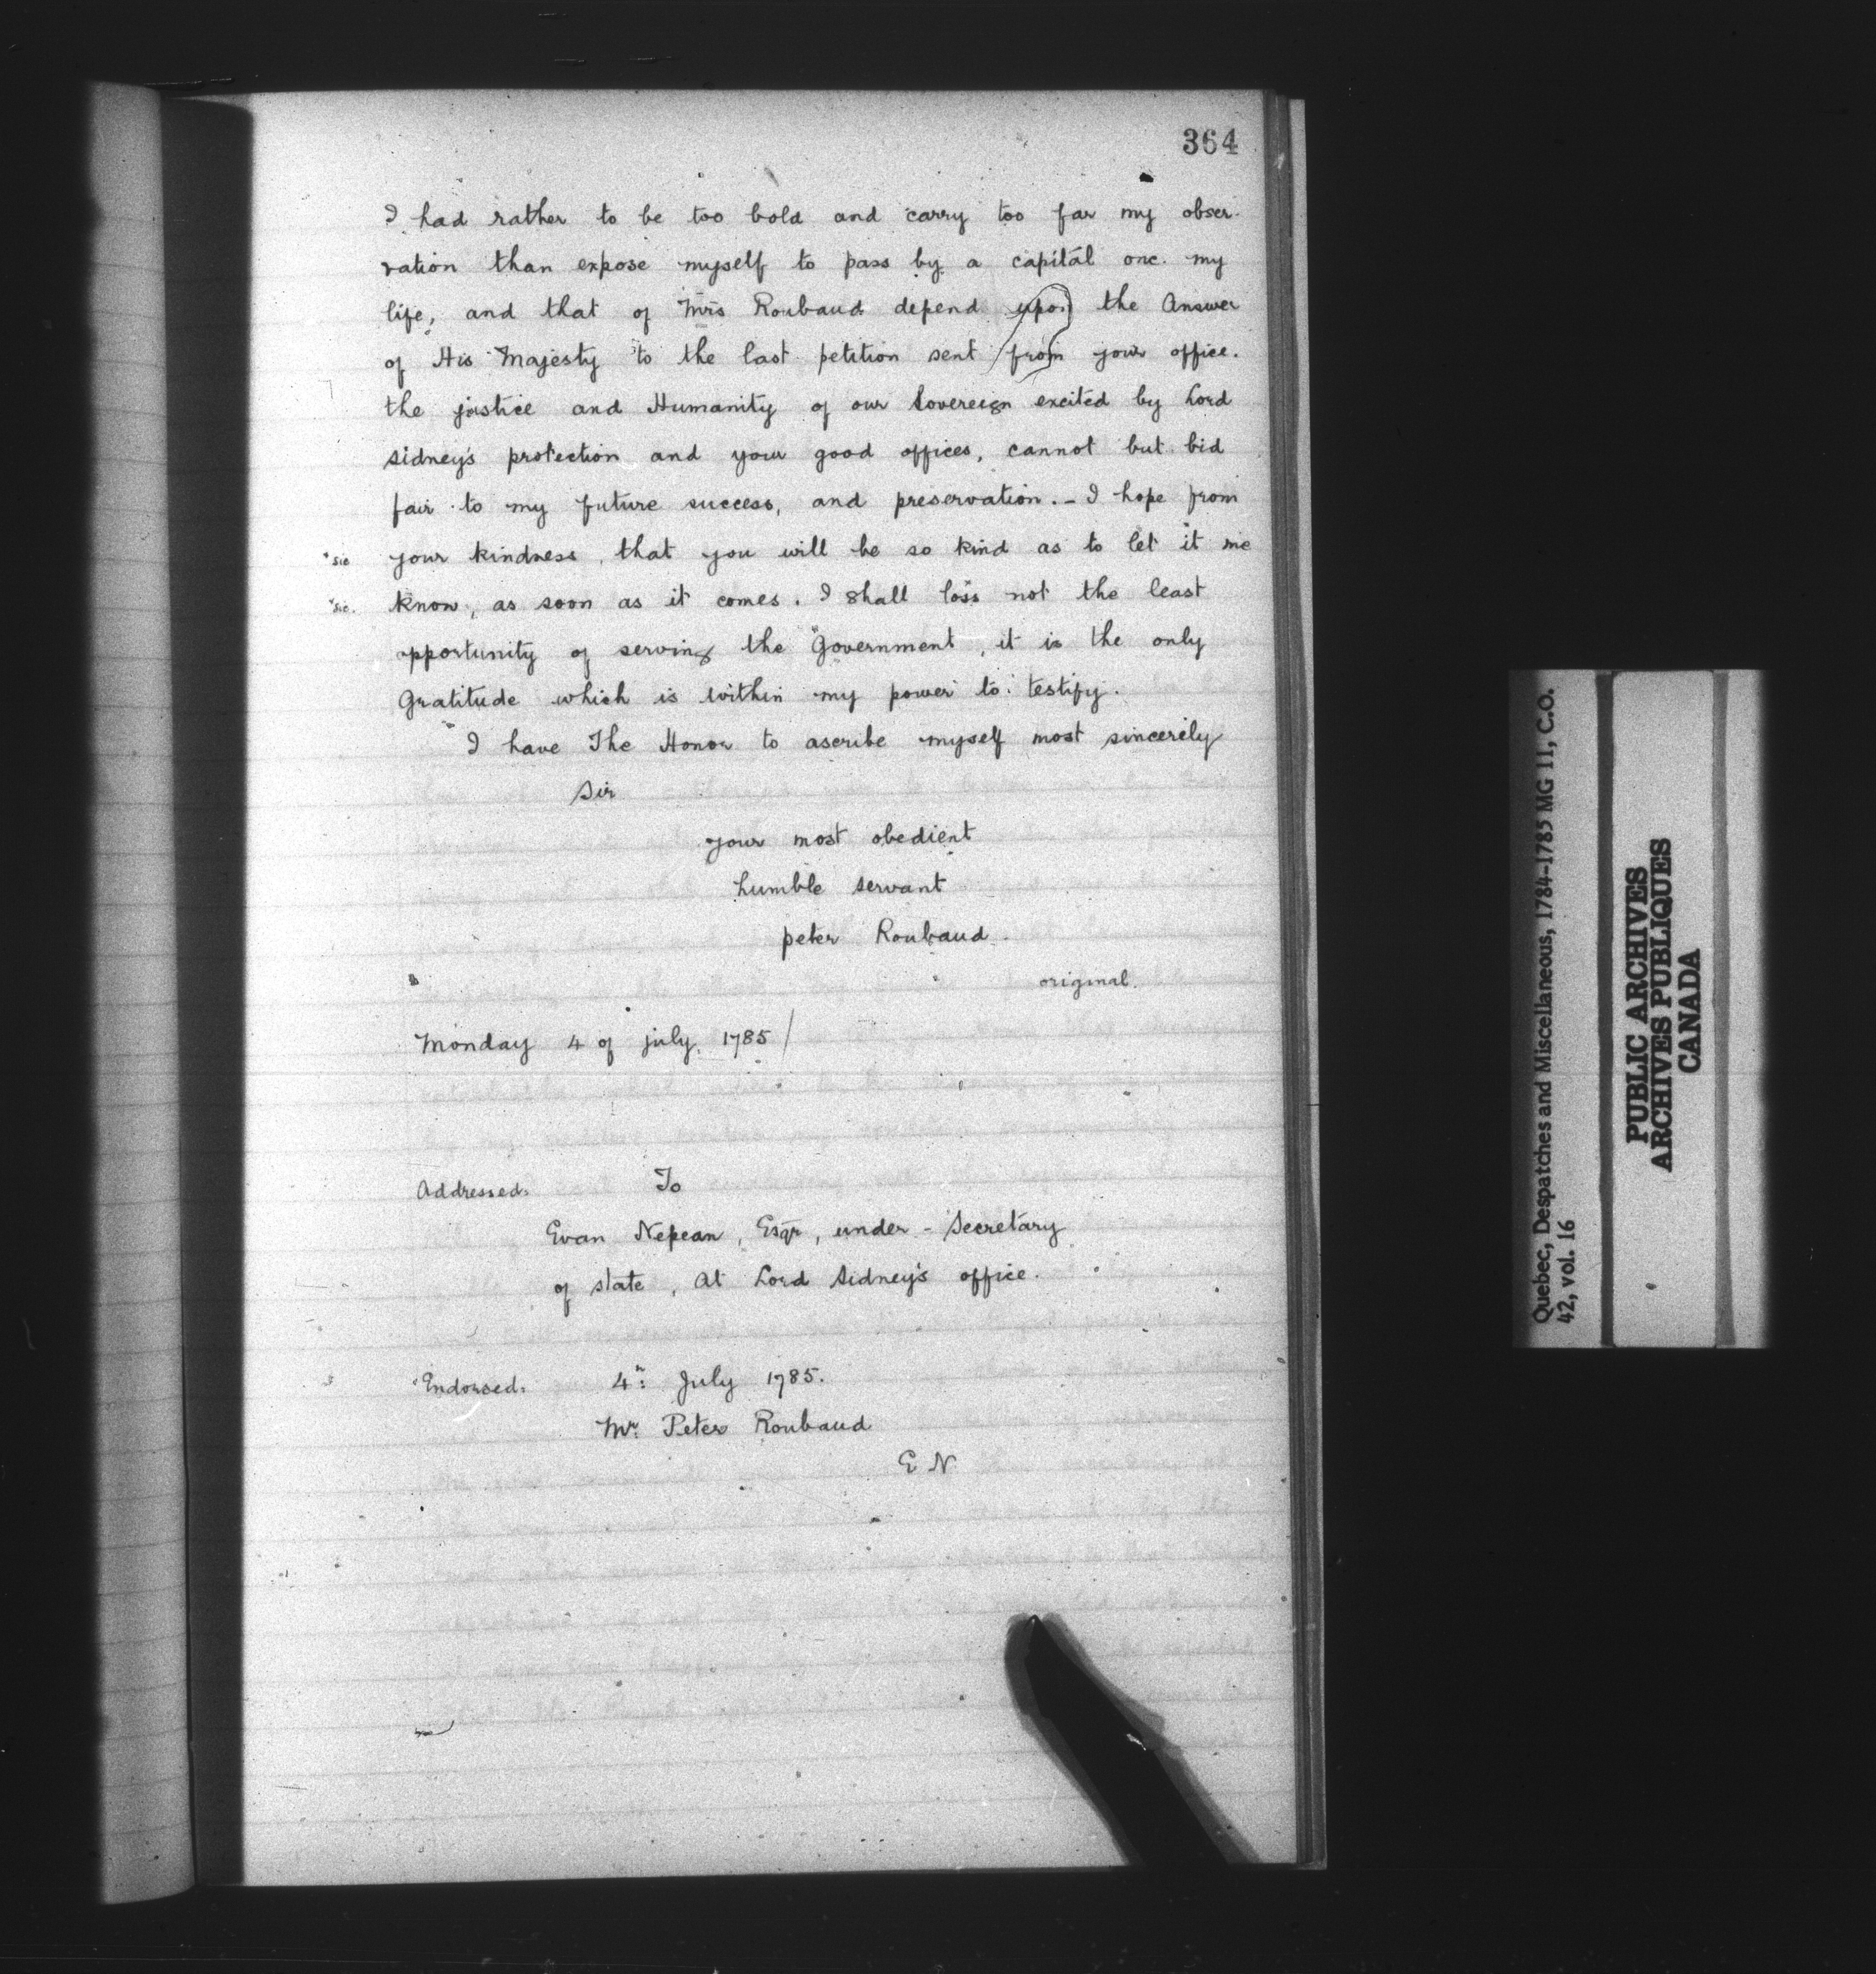 364
I had rather to be too bold and carry too far my obser-
vation than expose myself to pass by a capital one. my
life, and that of Mrs Roubaud depend upon the Answer
of His Majesty to the last petition sent from your office.
the justice and Humanity of our Sovereign excited by Lord
Sidney's protection and your good offices, cannot but bid
fair to my future success, and preservation. - I hope from
"sic your kindness, that you will be so kind as to let it me
"sic. know, as soon as it comes. I shall loss not the least
opportunity of serving the Government, it is the only
Gratitude which is within my power to testify.
I have The Honor to ascribe myself most sincerely
Sir
your most obedient
humble servant
peter Roubaud.
original.
Monday 4 of july 1785/
Addressed: To
Evan Nepean, Esqr, under-Secretary
of state, At Lord Sidney's office.
Endorsed: 4th July 1785.
Mr Peter Roubaud
E N
Quebec, Despatches and Miscellaneous, 1784-1785 MG 11, C.O.
42, vol. 16
PUBLIC ARCHIVES
ARCHIVES PUBLIQUES
CANADA